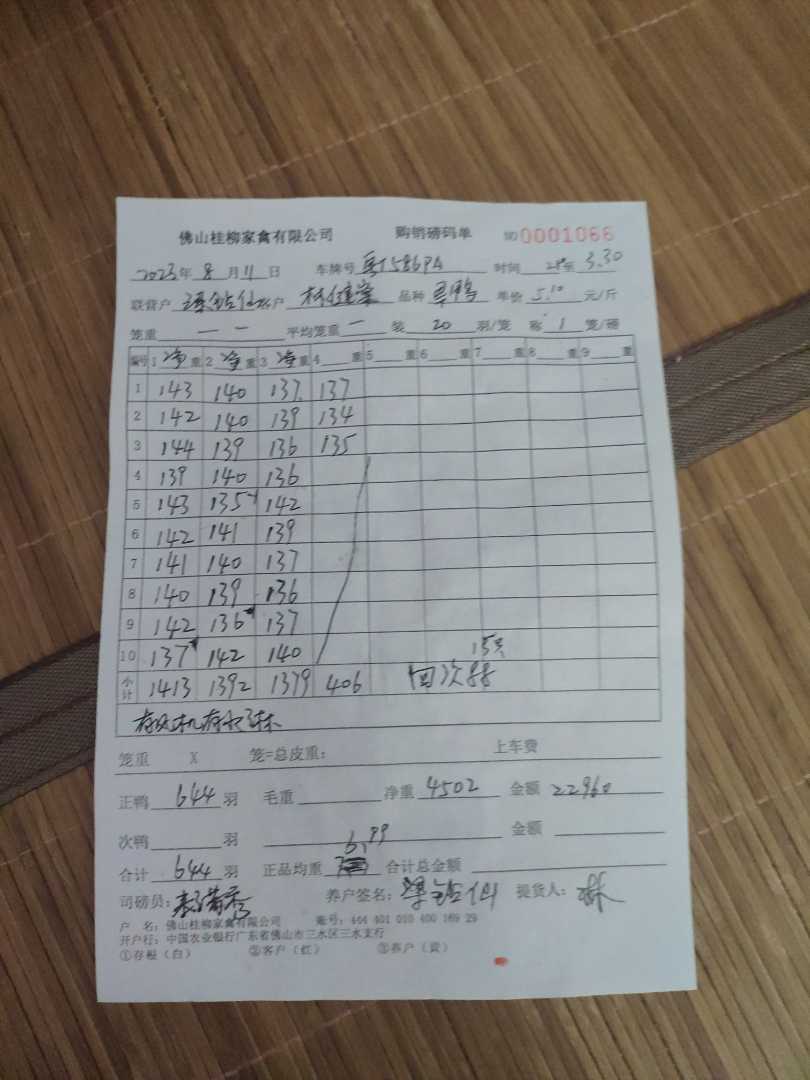 佛山桂柳家禽有限公司 购销磅码单 NO 0001066
2023年 8月 11日 车牌号 时间 至 3.30
联营户 客户 品种 单价 5.10 元/斤
笼重 一 一 平均笼重 一 装 20 羽/笼 称 1 笼/磅
编号 1 净重 2 净重 3 净重 4 重 5 重 6 重 7 重 8 重 9 重
1 143 140 137 137
2 142 140 139 134
3 144 139 136 135
4 139 140 136
5 143 135 142
6 142 141 139
7 141 140 137
8 140 139 136
9 142 136 137
10 137 142 140
小计 1413 1392 1379 406
笼重 X 笼=总皮重: 上车费
正鸭 644 羽 毛重 净重 4502 金额 22960
次鸭 羽 金额
合计 644 羽 正品均重 6.99 合计总金额
司磅员: 养户签名: 提货人: 林
户 名: 佛山桂柳家禽有限公司 账号: 444 401 010 400 169 29
开户行: 中国农业银行广东省佛山市三水区三水支行
①存根(白) ②客户(红) ③养户(黄)